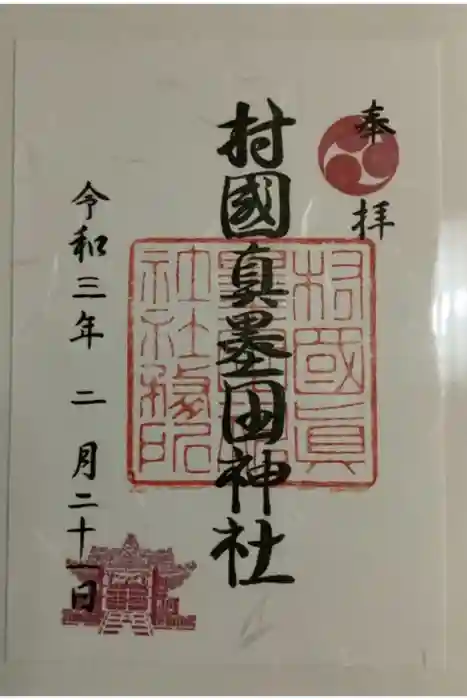 奉拝
村國真墨田神社
村國眞
墨田神
社社務所
令和三年二月二十一日